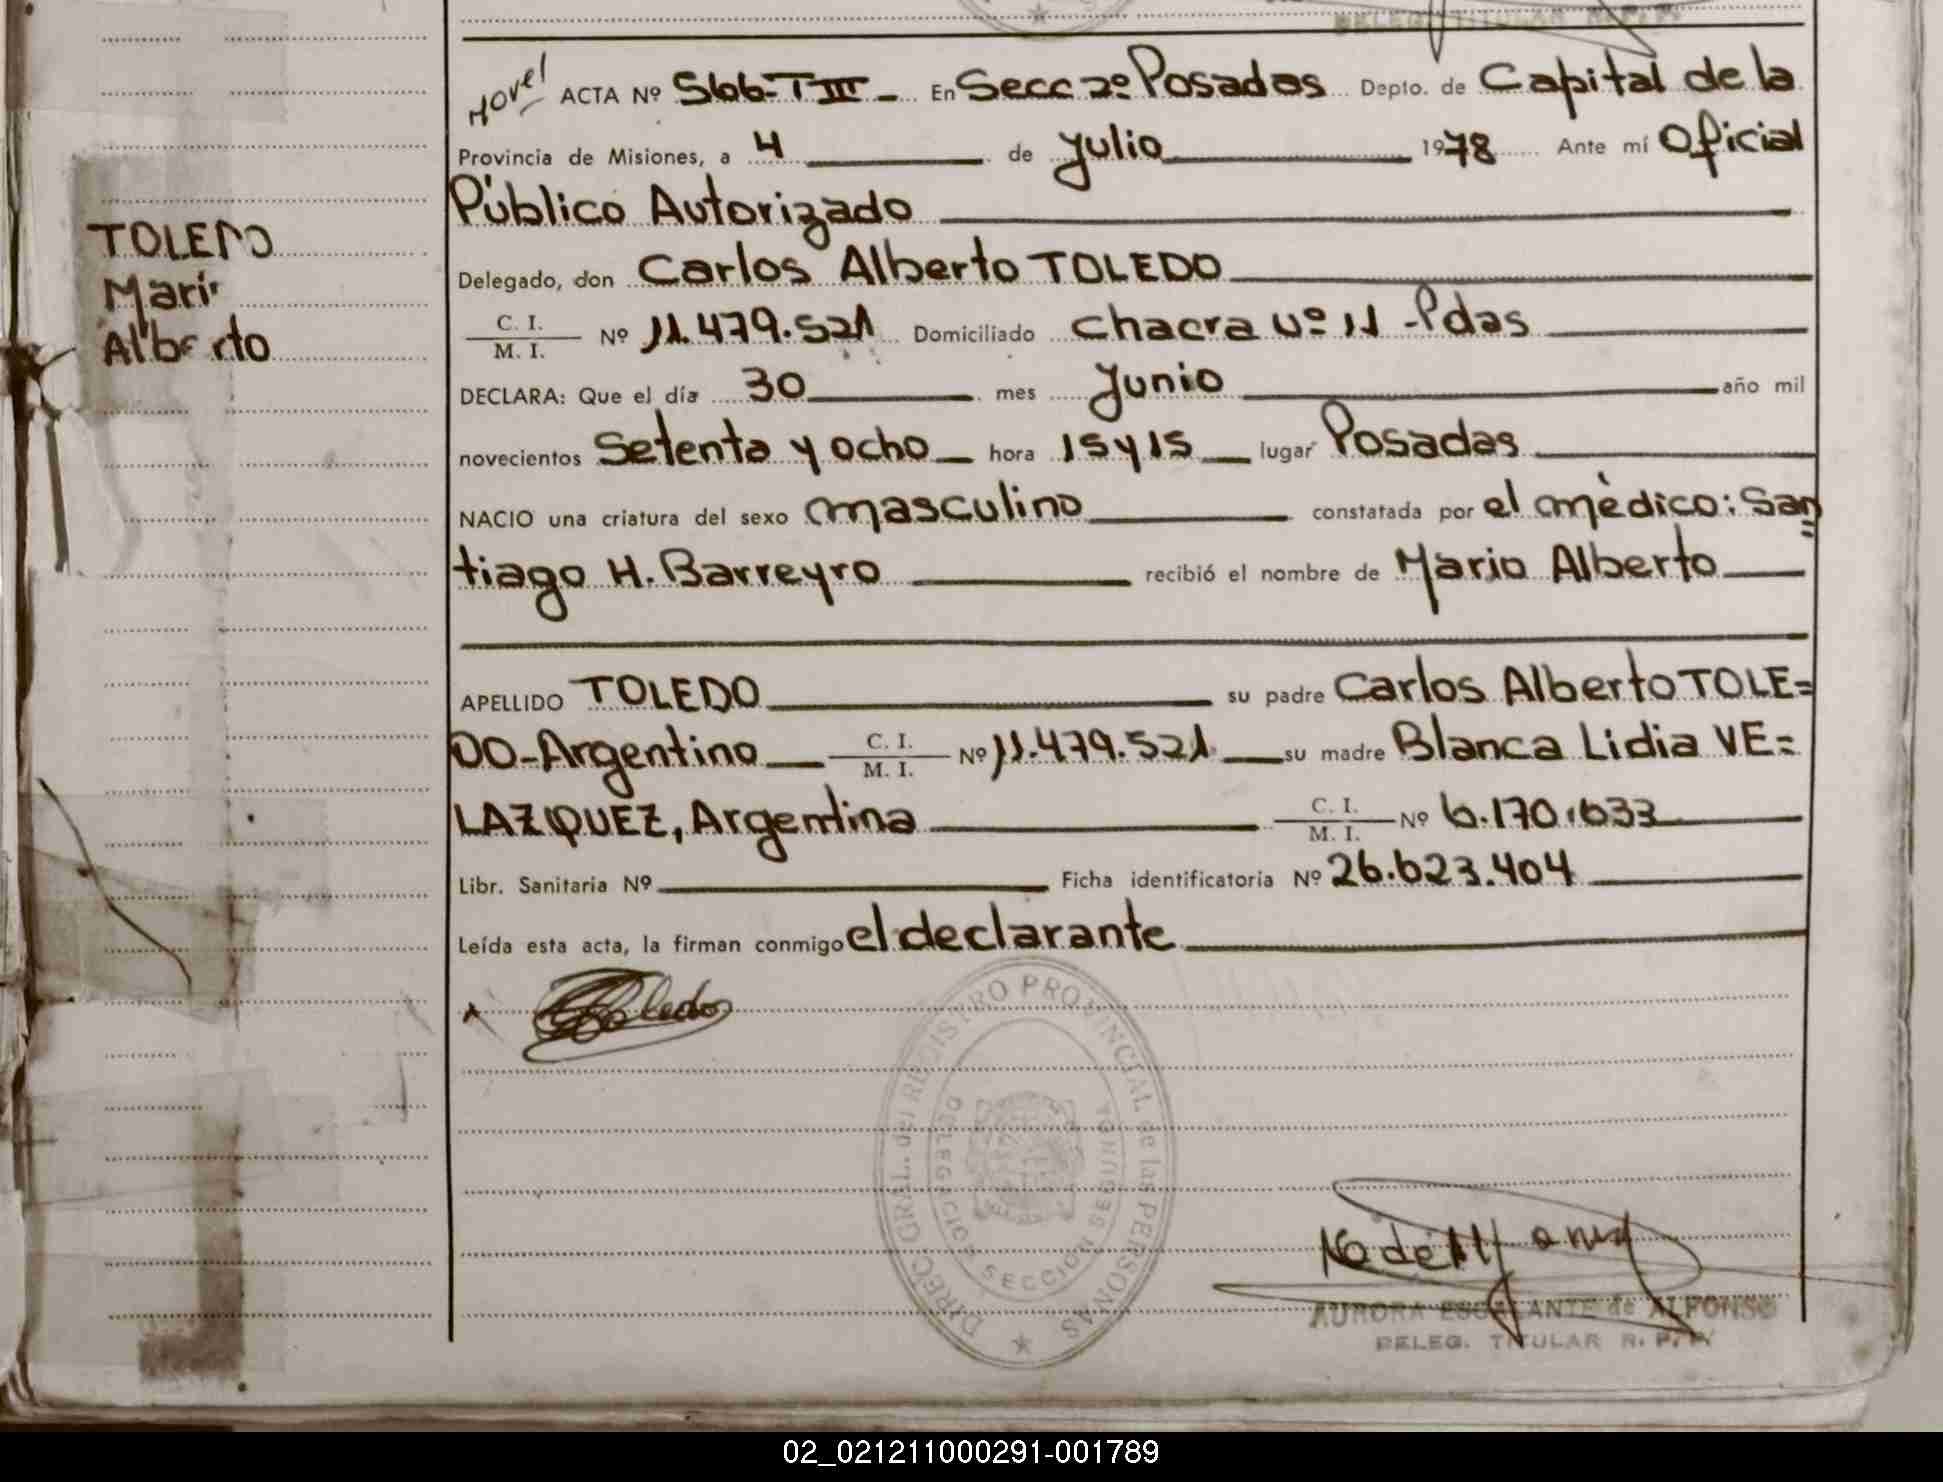 DELEG. TITULAR R. P. P.
ACTA Nº 566-T III - En Secc 2º Posadas Depto. de Capital de la
Provincia de Misiones, a 4 de Julio 1978 Ante mí Oficial
Público Autorizado
TOLEDO
Delegado, don Carlos Alberto TOLEDO
Mari
C. I.
M. I. Nº 11.479.521 Domiciliado Chacra Nº 11 - Pdas
Alberto
DECLARA: Que el día 30 mes Junio año mil
novecientos Setenta y ocho hora 15 y 15 lugar Posadas
NACIO una criatura del sexo masculino constatada por el mèdico: San=
tiago H. Barreyro recibió el nombre de Mario Alberto
APELLIDO TOLEDO su padre Carlos Alberto TOLE=
DO-Argentino C. I. M. I. Nº 11.479.521 su madre Blanca Lidia VE=
LAZQUEZ, Argentina C. I. M. I. Nº 6.170.633
Libr. Sanitaria Nº Ficha identificatoria Nº 26.623.404
Leída esta acta, la firman conmigo el declarante
Toledo
DIREC. GRAL. del REGISTRO PROVINCIAL de las PERSONAS
SECCION SEGUNDA
AURORA ESCALANTE de ALFONSO
DELEG. TITULAR R. P. P.
02_021211000291-001789